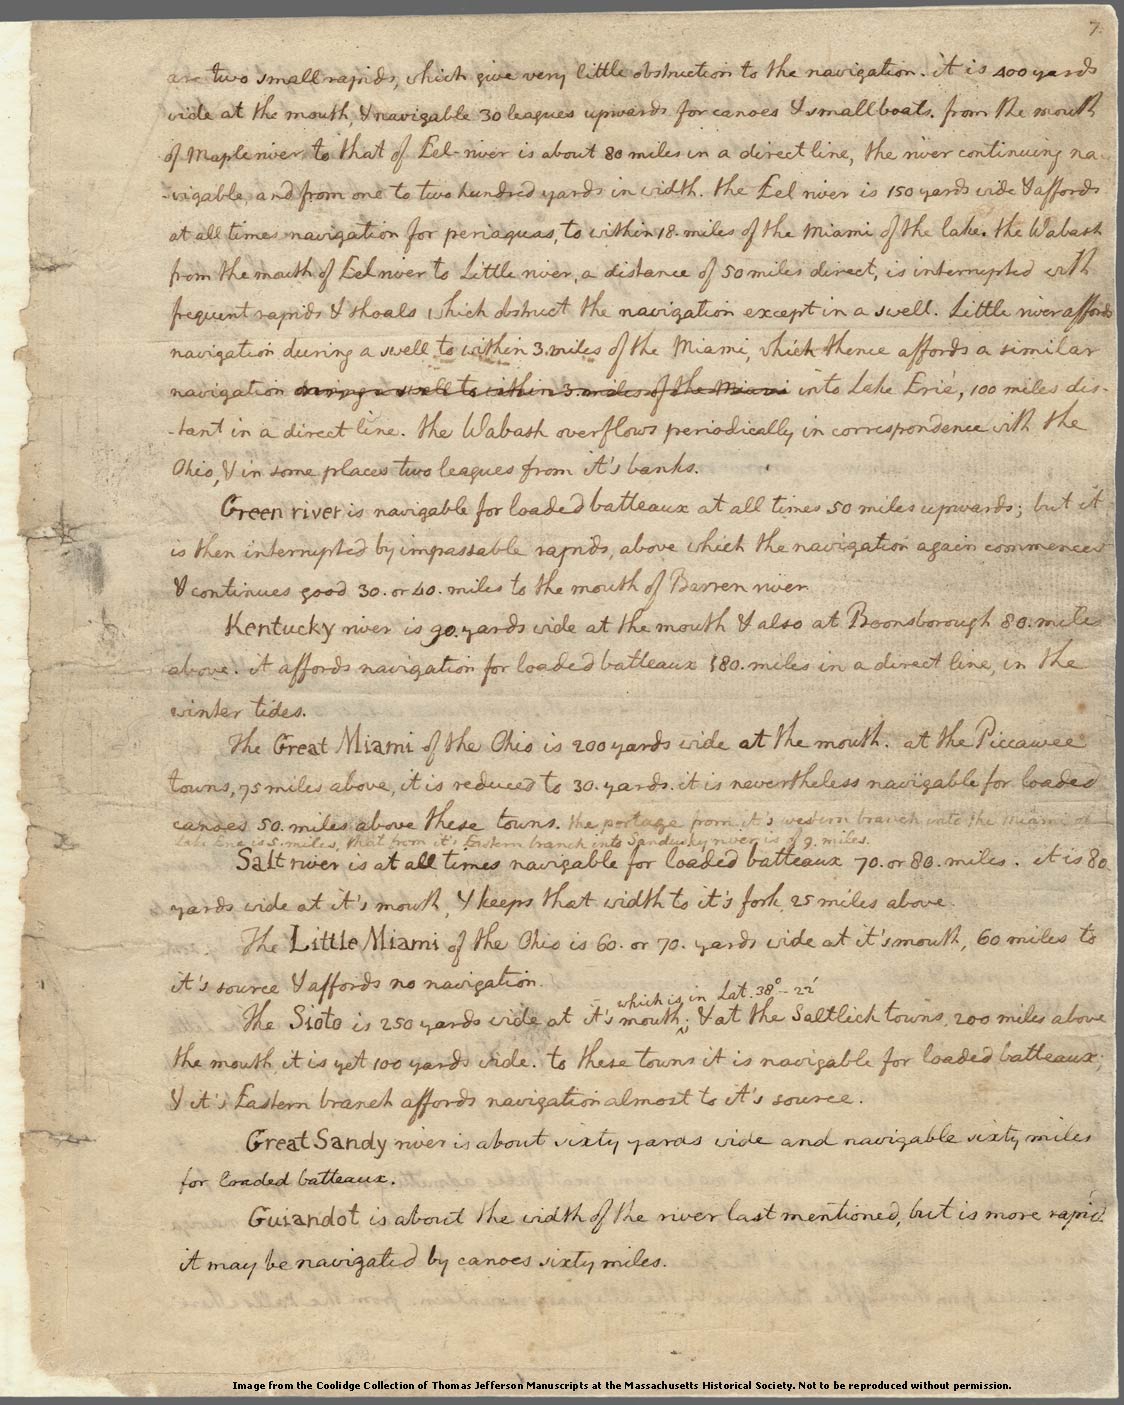 7.
are two small rapids, which give very little obstruction to the navigation. it is 400 yards
wide at the mouth, & navigable 30 leagues upwards for canoes & small boats. from the mouth
of Maple river to that of Eel-river is about 80 miles in a direct line, the river continuing na-
-vigable, and from one to two hundred yards in width. the Eel river is 150 yards wide & affords
at all times navigation for periaguas, to within 18. miles of the Miami of the lake. the Wabash
from the mouth of Eel river to Little river, a distance of 50 miles direct, is interrupted with
frequent rapids & shoals which obstruct the navigation except in a swell. Little river affords
navigation during a swell to within 3. miles of the Miami, which thence affords a similar
navigation during a swell to within 3. miles of the Miami into Lake Erié, 100 miles dis-
-tant in a direct line. the Wabash overflows periodically in correspondence with the
Ohio, & in some places two leagues from it's banks.
Green river is navigable for loaded batteaux at all times 50 miles upwards; but it
is then interrupted by impassable rapids, above which the navigation again commences
& continues good 30. or 40. miles to the mouth of Barren river.
Kentucky river is 90. yards wide at the mouth & also at Boonsborough 80. miles
above. it affords navigation for loaded batteaux 180. miles in a direct line, in the
winter tides.
The Great Miami of the Ohio is 200 yards wide at the mouth. at the Piccawee
towns, 75 miles above, it is reduced to 30. yards. it is nevertheless navigable for loaded
canoes 50. miles above these towns. the portage from it's western branch into the Miami of
Lake Erie is 5. miles, that from it's Eastern branch into Sandusky river is of 9. miles.
Salt river is at all times navigable for loaded batteaux 70. or 80. miles. it is 80.
yards wide at it's mouth, & keeps that width to it's fork, 25 miles above.
The Little Miami of the Ohio is 60. or 70. yards wide at it's mouth, 60 miles to
it's source & affords no navigation.
which is in Lat. 38° - 22'
The Sioto is 250 yards wide at it's mouth; & at the Saltlick towns, 200 miles above
the mouth, it is yet 100 yards wide. to these towns it is navigable for loaded batteaux;
& it's Eastern branch affords navigation almost to it's source.
Great Sandy river is about sixty yards wide and navigable sixty miles
for loaded batteaux.
Guiandot is about the width of the river last mentioned, but is more rapid.
it may be navigated by canoes sixty miles.
Image from the Coolidge Collection of Thomas Jefferson Manuscripts at the Massachusetts Historical Society. Not to be reproduced without permission.